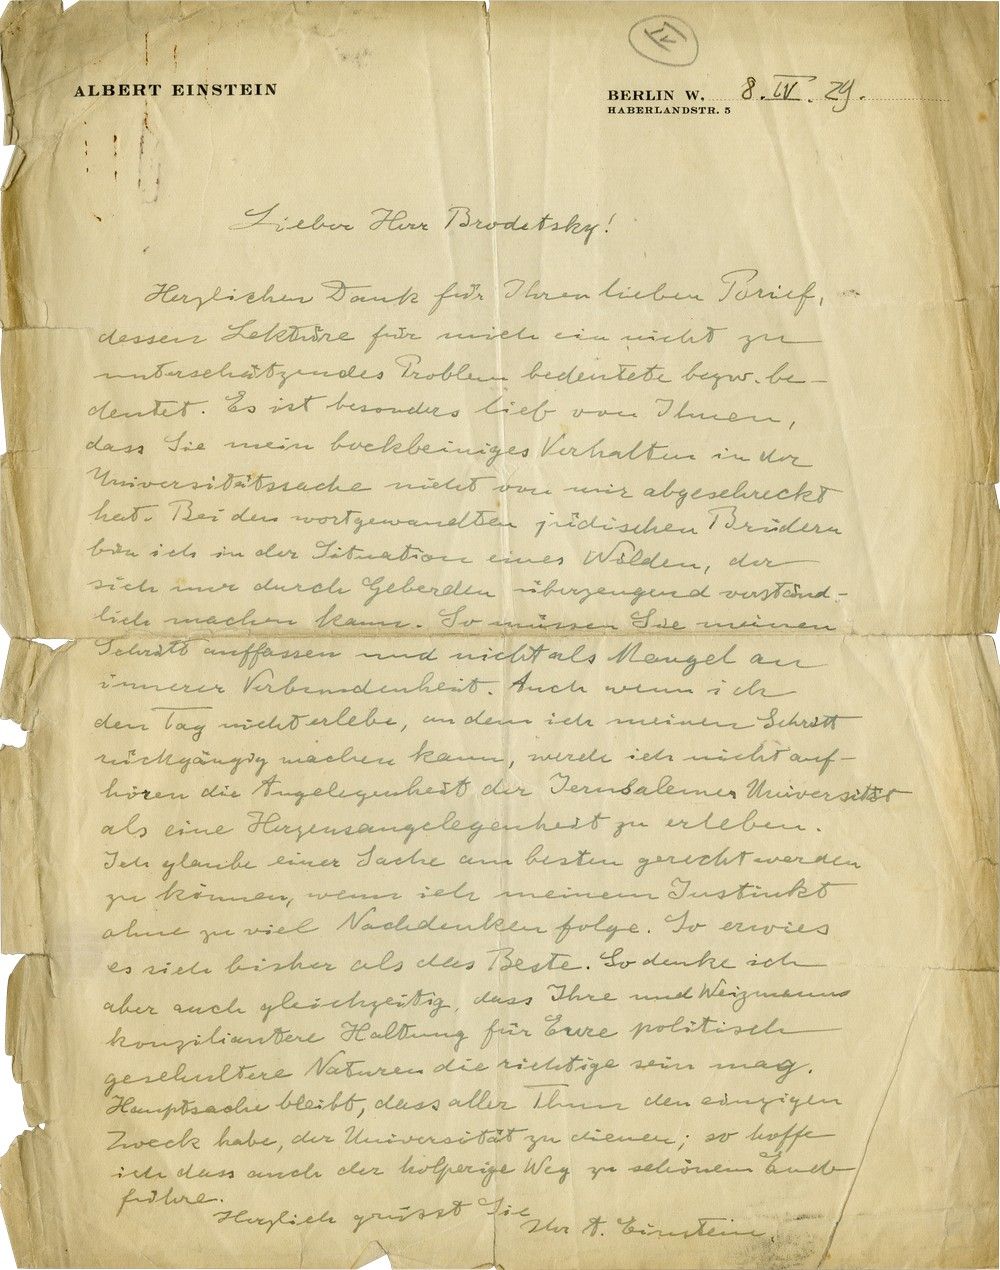 IV
ALBERT EINSTEIN
BERLIN W. 8. IV. 29.
HABERLANDSTR. 5
Lieber Herr Brodetsky!
Herzlichen Dank für Ihren lieben Brief,
dessen Lektüre für mich ein nicht zu
unterschätzendes Problem bedeutete bezw. be-
deutet. Es ist besonders lieb von Ihnen,
dass Sie mein bockbeiniges Verhalten in der
Universitätssache nicht von mir abgeschreckt
hat. Bei den wortgewandten jüdischen Brüdern
bin ich in der Situation eines Wilden, der
sich nur durch Geberden überzeugend verständ-
lich machen kann. So müssen Sie meinen
Schritt auffassen und nicht als Mangel an
innerer Verbundenheit. Auch wenn ich
den Tag nicht erlebe, an dem ich meinen Schritt
rückgängig machen kann, werde ich nicht auf-
hören die Angelegenheit der Jerusalemer Universität
als eine Herzensangelegenheit zu erleben.
Ich glaube einer Sache am besten gerecht werden
zu können, wenn ich meinem Instinkt
ohne zu viel Nachdenken folge. So erwies
es sich bisher als das Beste. So denke ich
aber auch gleichzeitig, dass Ihre und Weizmanns
konziliantere Haltung für Eure politisch
geschultere Naturen die richtige sein mag.
Hauptsache bleibt, dass aller Thun den einzigen
Zweck habe, der Universität zu dienen; so hoffe
ich dass auch der holperige Weg zu schönem Ende
führe.
Herzlich grüsst Sie
Ihr A. Einstein.